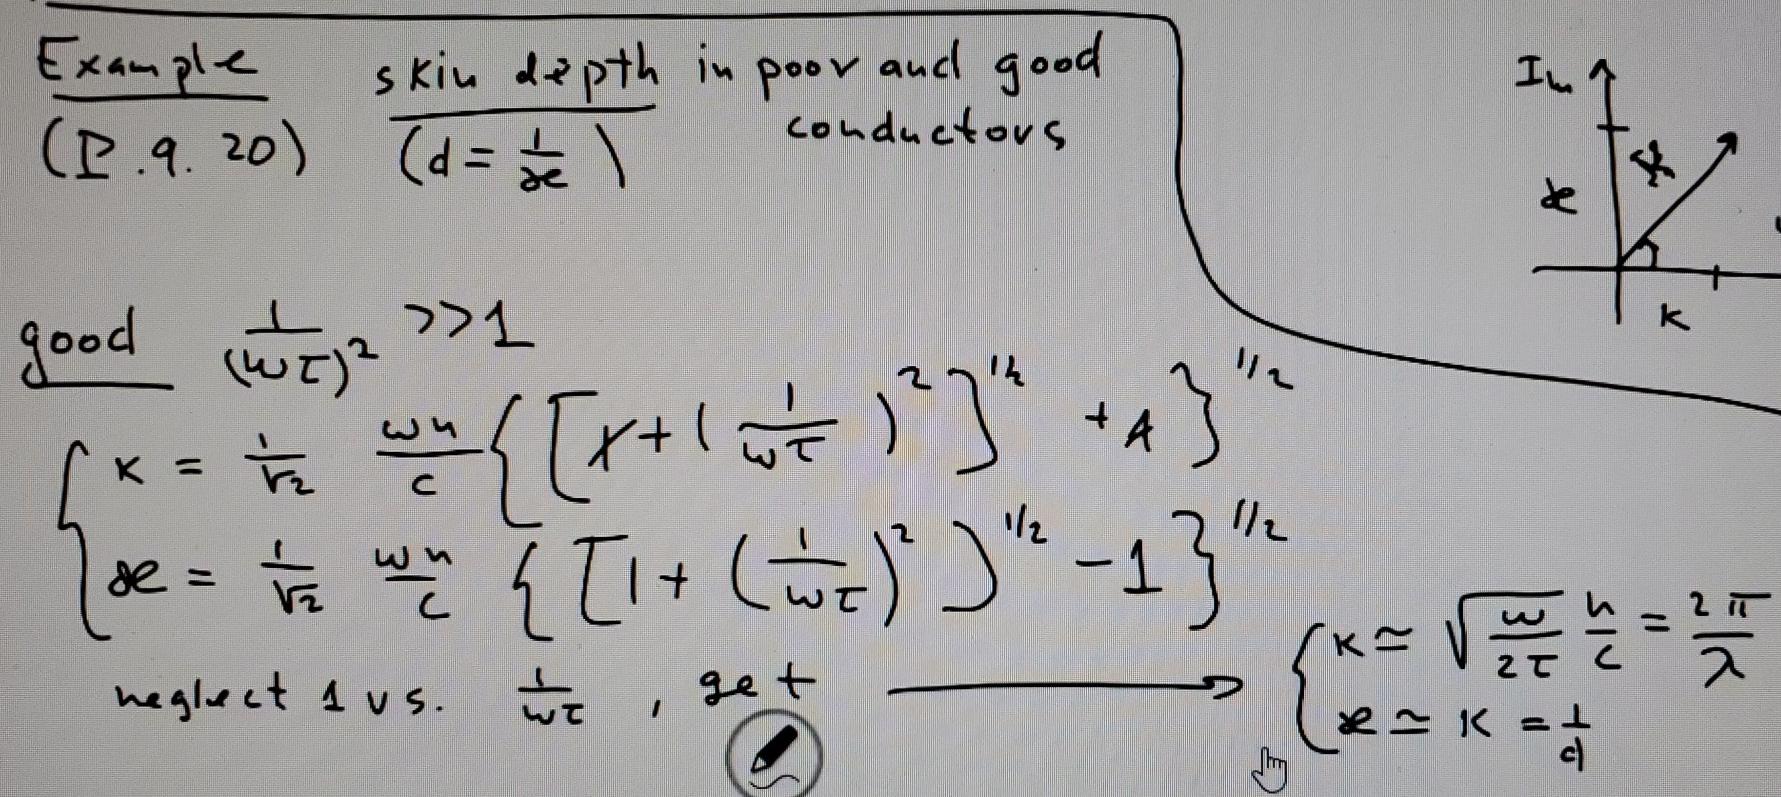 Example skin depth in poor and good
(P.9.20) (d = 1/æ) conductors
Im
æ
k
good 1/(ωτ)² >>1
k = 1/√2 ωn/c { [ 1 + ( 1/ωτ )² ]^1/2 + 1 }^1/2
æ = 1/√2 ωn/c { [ 1 + ( 1/ωτ )² ]^1/2 - 1 }^1/2
neglect 1 vs. 1/ωτ , get →
k ≃ √(ω/2τ) n/c = 2π/λ
æ ≃ k = 1/d